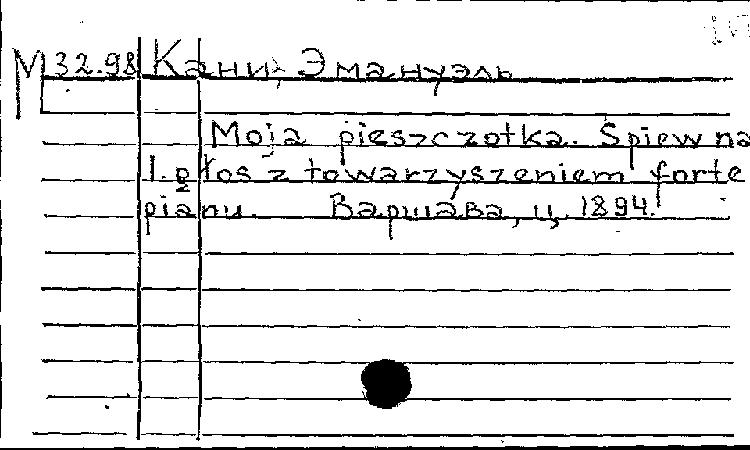 М 32.98 Кани, Эмануэль
Moja pieszczotka. Śpiew na
1. głos z towarzyszeniem forte
pianu. Варшава, ц. 1894.